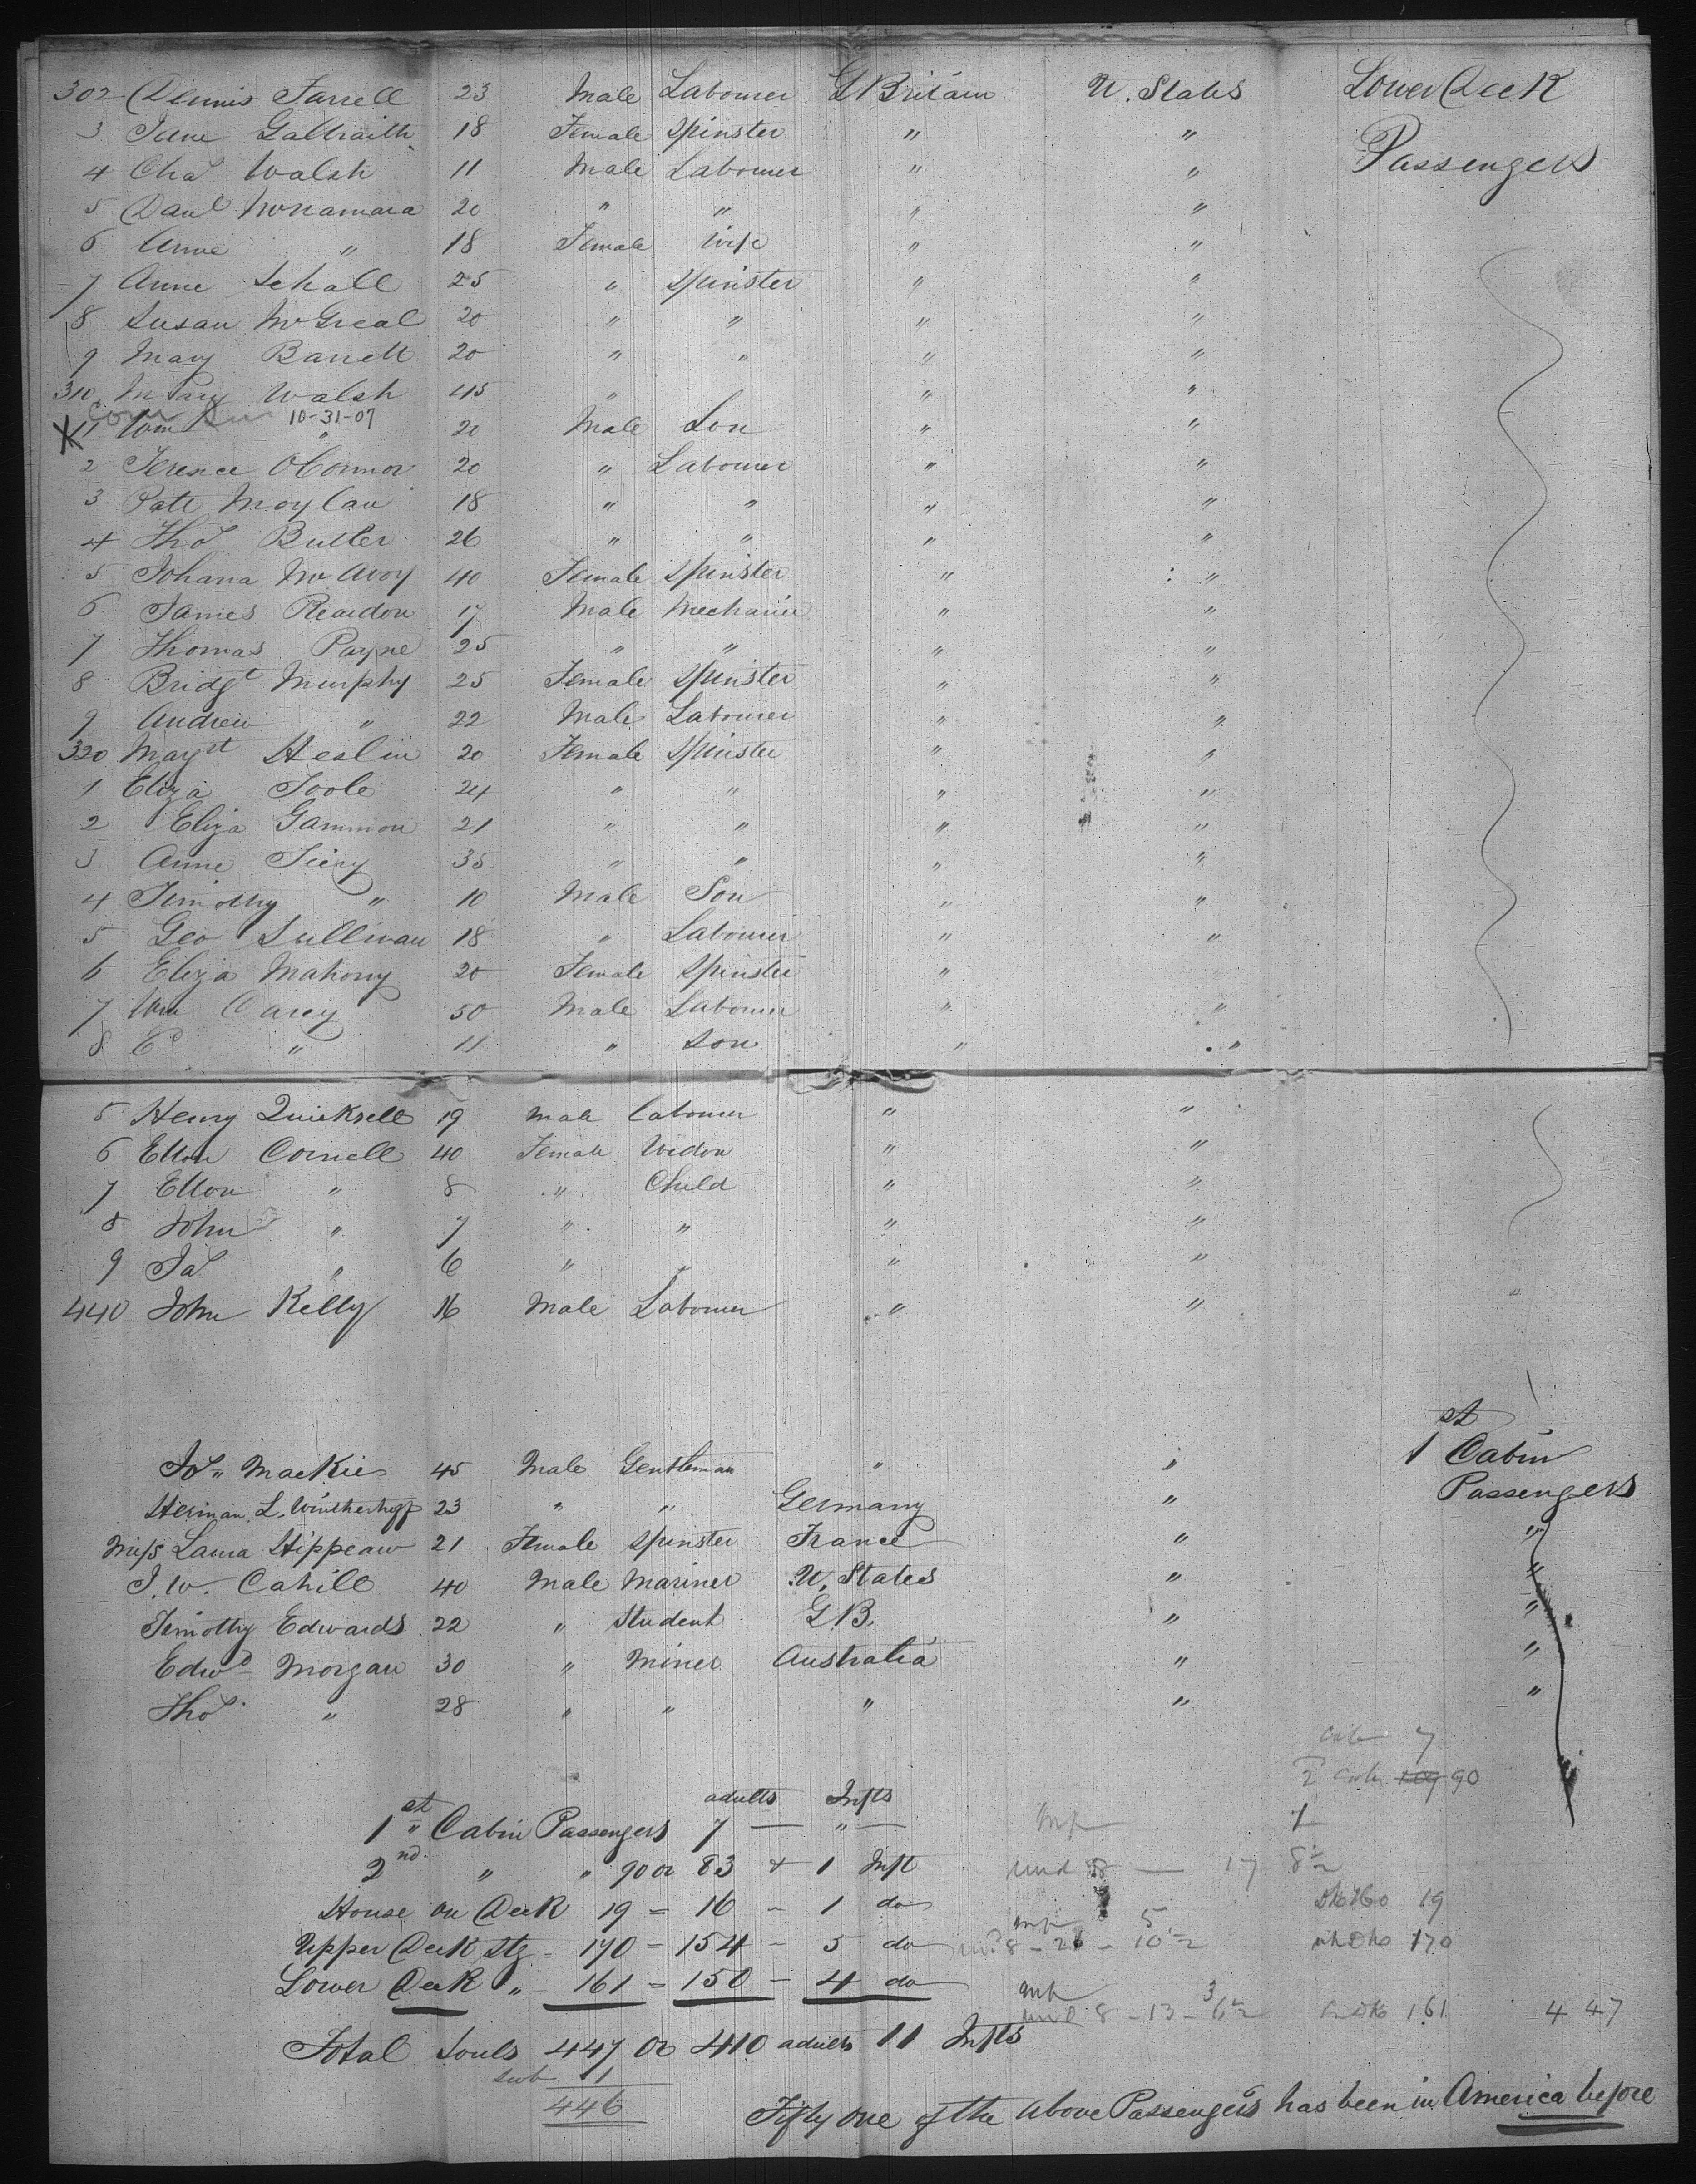 302 Dennis Farrell 23 Male Labourer G Britain U. States Lower Deck
3 Jane Galbraith 18 Female Spinster " " Passengers
4 Chas Walsh 11 Male Labourer " "
5 Danl McNamara 20 " " " "
6 Anne " 18 Female Wife " "
7 Anne Schall 25 " Spinster " "
8 Susan McGreal 20 " " " "
9 Mary Barrett 20 " " " "
310 Mary Walsh 45 " " "
10-31-07
X 11 Wm " 20 Male Son " "
2 Terence OConnor 20 " Labourer " "
3 Patt Moylan 18 " " " "
4 Thos Butler 26 " " " "
5 Johana McAvoy 40 Female Spinster " "
6 James Reardon 17 Male Mechanic " "
7 Thomas Payne 25 " " " "
8 Bridgt Murphy 25 Female Spinster " "
9 Andrew " 22 Male Labourer " "
320 Margt Heslin 20 Female Spinster " "
1 Eliza Toole 24 " " " "
2 Eliza Gammon 21 " " " "
3 Anne 35 " " " "
4 Timothy " 10 Male Son " "
5 Geo Sullivan 18 " Labourer " "
6 Eliza Mahony 20 Female Spinster "
7 Wm Carey 50 Male Labourer " "
8 Ed " 11 " Son " "
5 Henry Quicksell 19 Male Labourer " "
6 Ellen Cornell 40 Female Widow " "
7 Ellen " 8 " Child " "
8 John " 7 " " " "
9 Jas " 6 " " " "
440 John Kelly 16 Male Labourer " "
Jos Mackie 45 Male Gentleman " " 1st Cabin
Herman. L. 23 " " Germany " Passengers
Miss Laura Hippeaw 21 Female Spinster France " "
J. W. Cahill 40 Male Mariner U. States " "
Timothy Edwards 22 " Student G.B. " "
Edwd Morgan 30 " Miner Australia " "
Thos " 28 " " " " "
Cab 7
2d Cab 109 90
adults Infts
1st Cabin Passengers 7 — " — Inf 1
2nd " " 90 or 83 + 1 Inft und 8 — 17 8½
House on Deck 19 = 16 - 1 do 19
Upper Deck Stg = 170 = 154 - 5 do Inf 5 und 8 - 21 - 10½ 170
Lower Deck " 161 = 150 - 4 do Inf
und 8 - 13 - 6½ 161 447
Total Souls 447 or 410 adults 11 Infts
sub 11
446
Fifty one of the above Passengers has been in America before